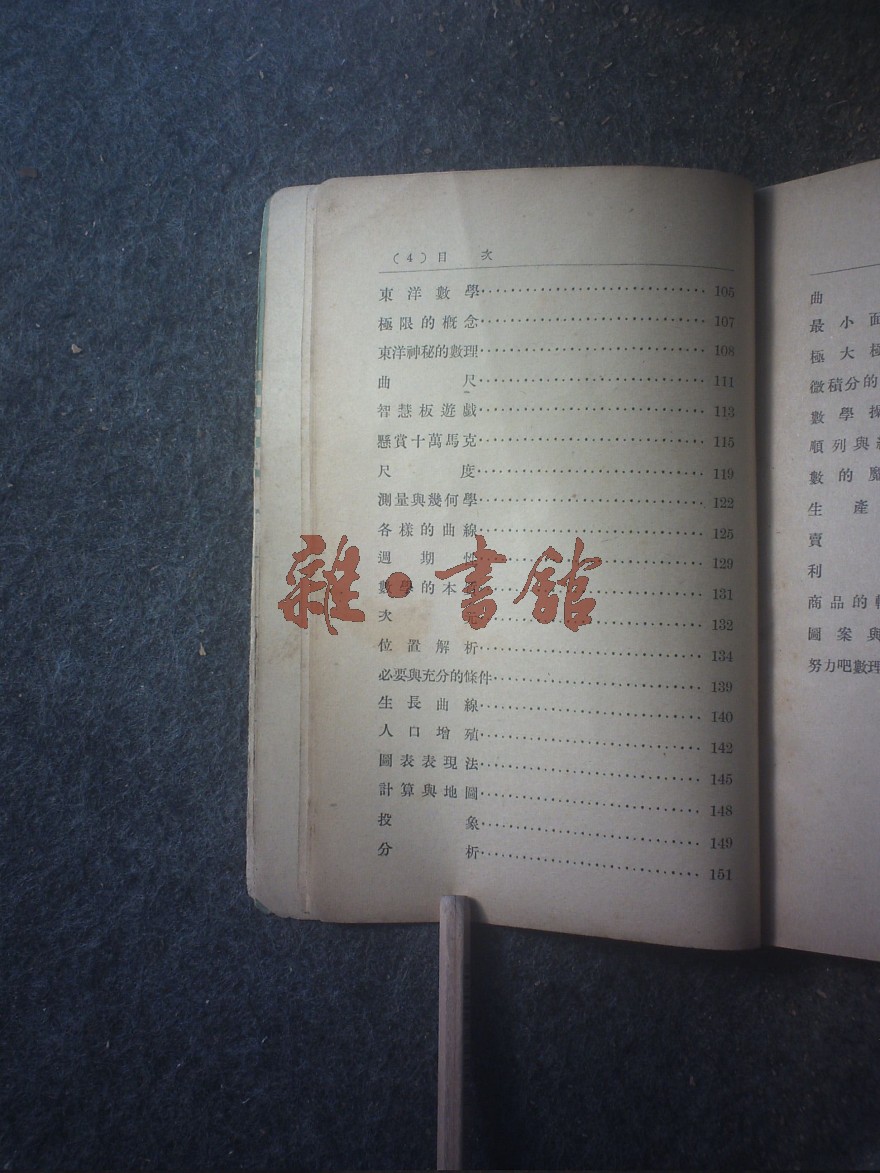 (4) 目 次
東洋數學 105
極限的概念 107
東洋神秘的數理 108
曲尺 111
智慧板遊戲 113
懸賞十萬馬克 115
尺度 119
測量與幾何學 122
各樣的曲線 125
週期性 129
數學的本 131
次 132
位置解析 134
必要與充分的條件 139
生長曲線 140
人口增殖 142
圖表表現法 145
計算與地圖 148
投象 149
分析 151
雜·書館
曲
最小面
極大極
微積分的
數學
順列與
數的魔
生產
賣
利
商品的
圖案與
努力吧數理